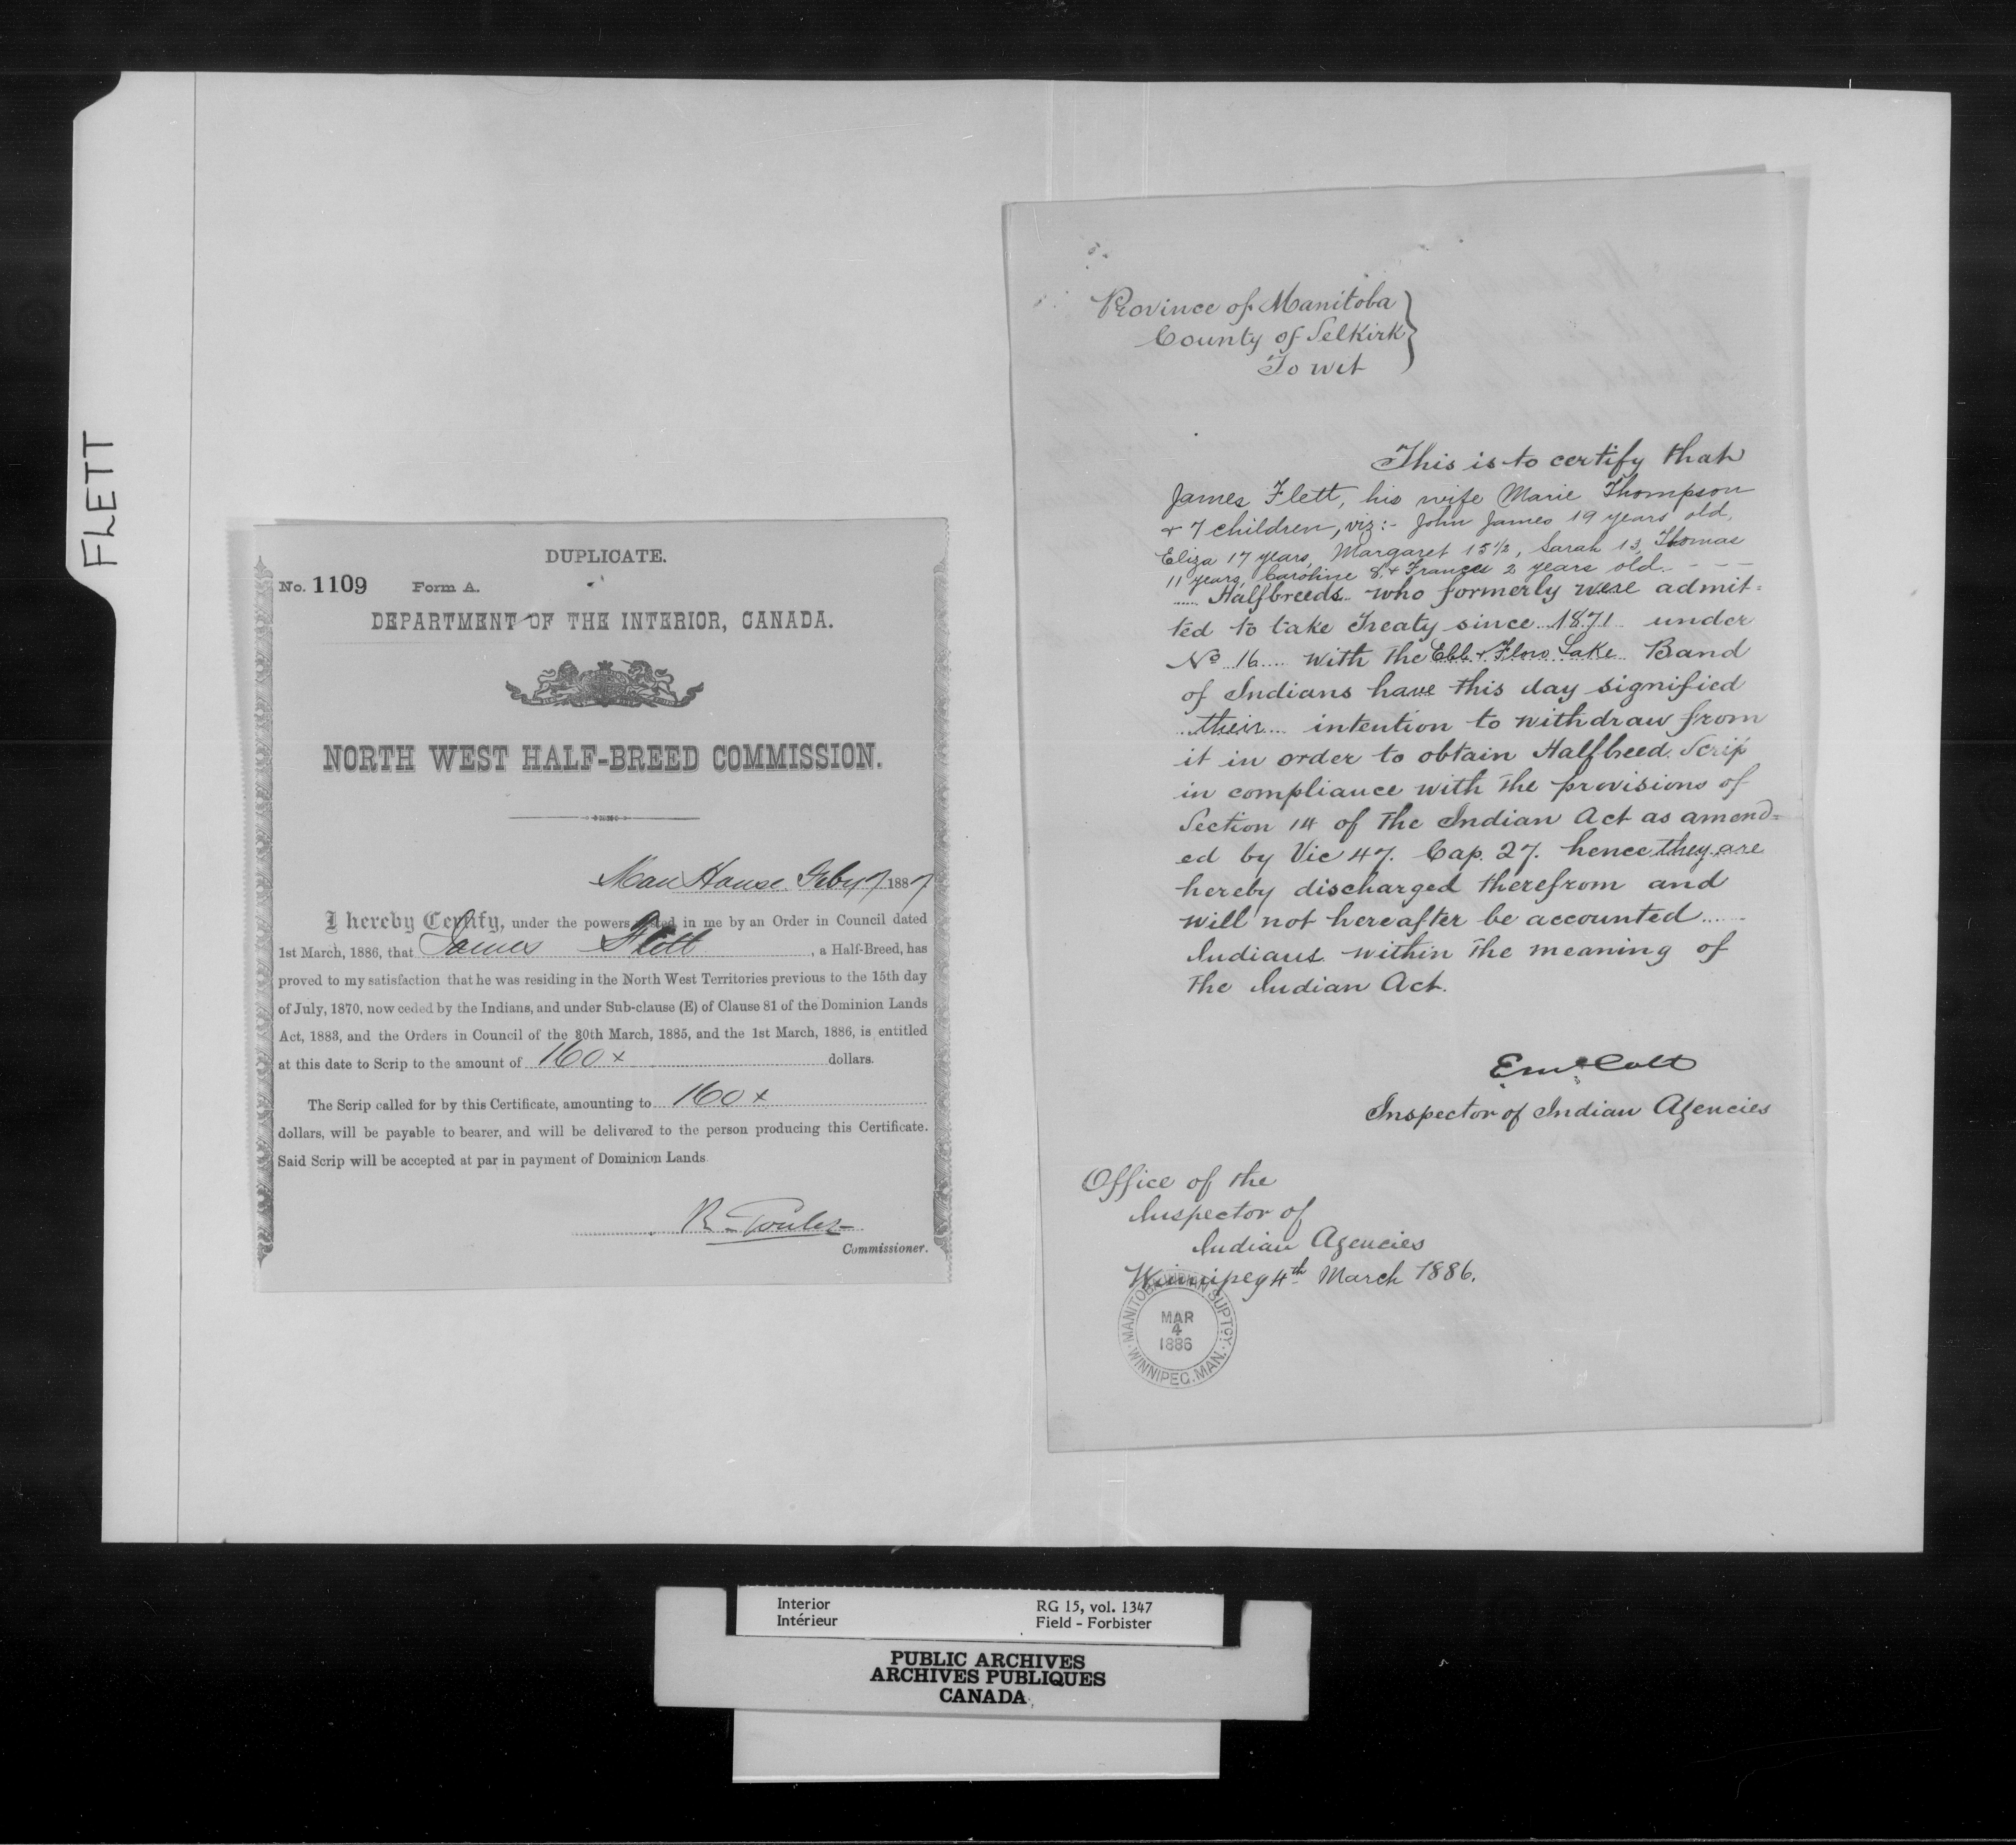 FLETT
DUPLICATE.
No. 1109 Form A.
DEPARTMENT OF THE INTERIOR, CANADA.
NORTH WEST HALF-BREED COMMISSION.
Man House Feby 7 1887
I hereby Certify, under the powers vested in me by an Order in Council dated
1st March, 1886, that James Flett, a Half-Breed, has
proved to my satisfaction that he was residing in the North West Territories previous to the 15th day
of July, 1870, now ceded by the Indians, and under Sub-clause (E) of Clause 81 of the Dominion Lands
Act, 1883, and the Orders in Council of the 30th March, 1885, and the 1st March, 1886, is entitled
at this date to Scrip to the amount of 160 x dollars.
The Scrip called for by this Certificate, amounting to 160 x
dollars, will be payable to bearer, and will be delivered to the person producing this Certificate.
Said Scrip will be accepted at par in payment of Dominion Lands.
R. Goulet
Commissioner.
Province of Manitoba
County of Selkirk
To wit
This is to certify that
James Flett, his wife Marie Thompson
& 7 children, viz:- John James 19 years old,
Eliza 17 years, Margaret 15 1/2, Sarah 13, Thomas
11 years, Caroline 8, & Frances 2 years old. - - -
Halfbreeds who formerly were admit=
ted to take Treaty since 1871 under
No 16 with the Ebb & Flow Lake Band
of Indians have this day signified
their intention to withdraw from
it in order to obtain Halfbreed Scrip
in compliance with the provisions of
Section 14 of the Indian Act as amend=
ed by Vic 47. Cap. 27. hence they are
hereby discharged therefrom and
will not hereafter be accounted
Indians within the meaning of
the Indian Act.
Inspector of Indian Agencies
Office of the
Inspector of
Indian Agencies
Winnipeg 4th March 1886.
MANITOBA INDIAN SUPTCY.
MAR
4
1886
WINNIPEG. MAN.
Interior RG 15, vol. 1347
Intérieur Field - Forbister
PUBLIC ARCHIVES
ARCHIVES PUBLIQUES
CANADA